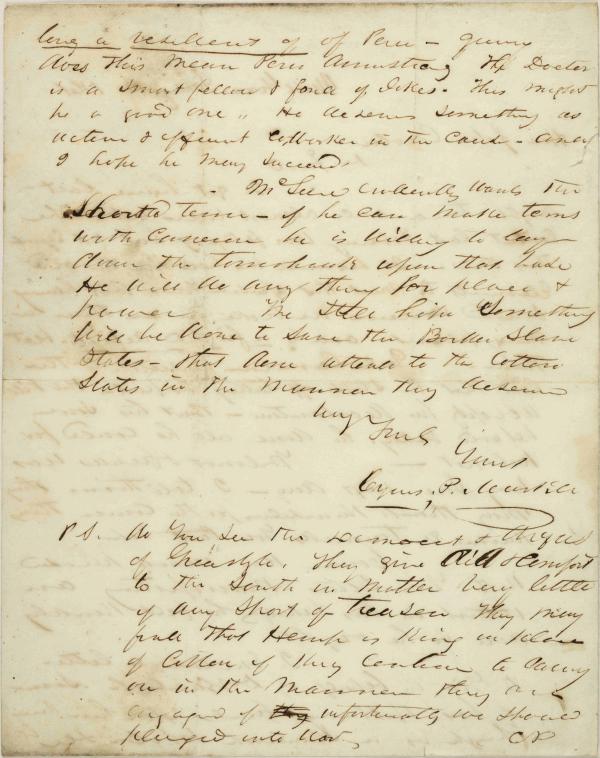 long a resident of of Peru — query
does this mean Peru Armstrong The Doctor
is a Smart fellow & fond of Jokes. This might
be a good one " He deserves something as
active & efficient Coworker in the Cause — and
I hope he may succeed
McClure evidently wants the
Short term — if he can make terms
with Cameron he is willing to lay
down the tomahawk upon that basis
He will do any thing for place &
power We Still hope Something
will be done to Save the Border Slave
States — that done attend to the Cotton
States in the Manner they deserve
Very
Truly
Yours
Cyrus P.
P S. do You See the Democrat & Argus
of They give Aid & Comfort
to the South in Matter very little
if any Short of treason They may
find that Hemp is King in place
of Cotton if they Continue to Carry
on in the Manner they are
engaged if they unfortunately we should
plunged into War,